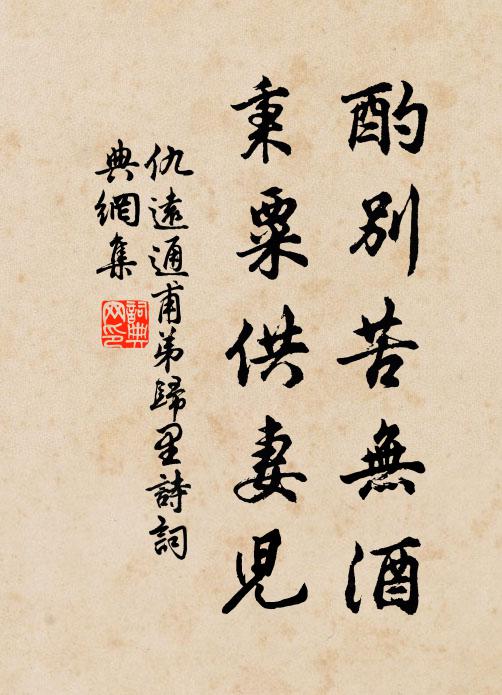 酌別苦無酒
秉粟供妻兒
仇遠通甫弟歸里詩詞
典網集
詞典
网印